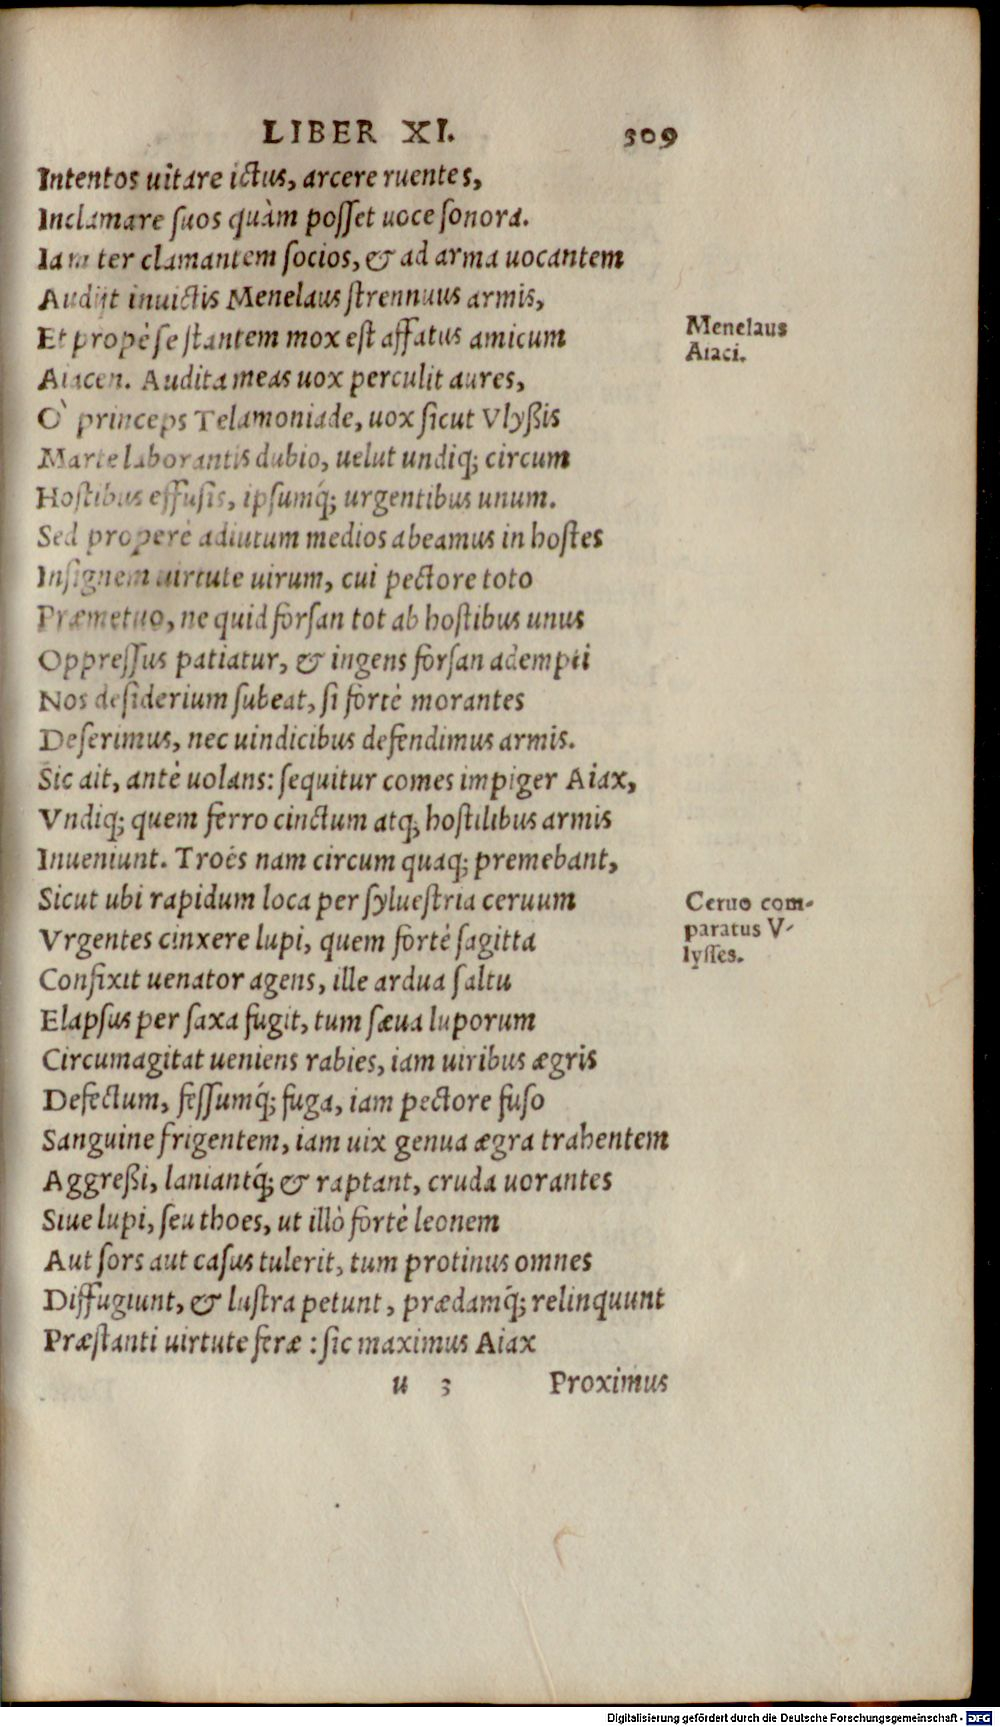 LIBER XI. 309
Intentos uitare ictus, arcere ruentes,
Inclamare suos quàm posset uoce sonora.
Iam ter clamantem socios, & ad arma uocantem
Audijt inuictis Menelaus strennuus armis,
Et propè se stantem mox est affatus amicum
Menelaus
Aiaci.
Aiacen. Audita meas uox perculit aures,
O` princeps Telamoniade, uox sicut Vlyßis
Marte laborantis dubio, uelut undiq; circum
Hostibus effusis, ipsumq́; urgentibus unum.
Sed properè adiutum medios abeamus in hostes
Insignem uirtute uirum, cui pectore toto
Præmetuo, ne quid forsan tot ab hostibus unus
Oppressus patiatur, & ingens forsan adempti
Nos desiderium subeat, si fortè morantes
Deserimus, nec uindicibus defendimus armis.
Sic ait, antè uolans: sequitur comes impiger Aiax,
Vndiq; quem ferro cinctum atq; hostilibus armis
Inueniunt. Troës nam circum quaq; premebant,
Sicut ubi rapidum loca per syluestria ceruum
Ceruo com-
paratus V-
lysses.
Vrgentes cinxere lupi, quem fortè sagitta
Confixit uenator agens, ille ardua saltu
Elapsus per saxa fugit, tum sæua luporum
Circumagitat ueniens rabies, iam uiribus ægris
Defectum, fessumq́; fuga, iam pectore fuso
Sanguine frigentem, iam uix genua ægra trahentem
Aggreßi, laniantq́; & raptant, cruda uorantes
Siue lupi, seu thoes, ut illò fortè leonem
Aut sors aut casus tulerit, tum protinus omnes
Diffugiunt, & lustra petunt, prædamq́; relinquunt
Præstanti uirtute feræ: sic maximus Aiax
u 3 Proximus
Digitalisierung gefördert durch die Deutsche Forschungsgemeinschaft - DFG